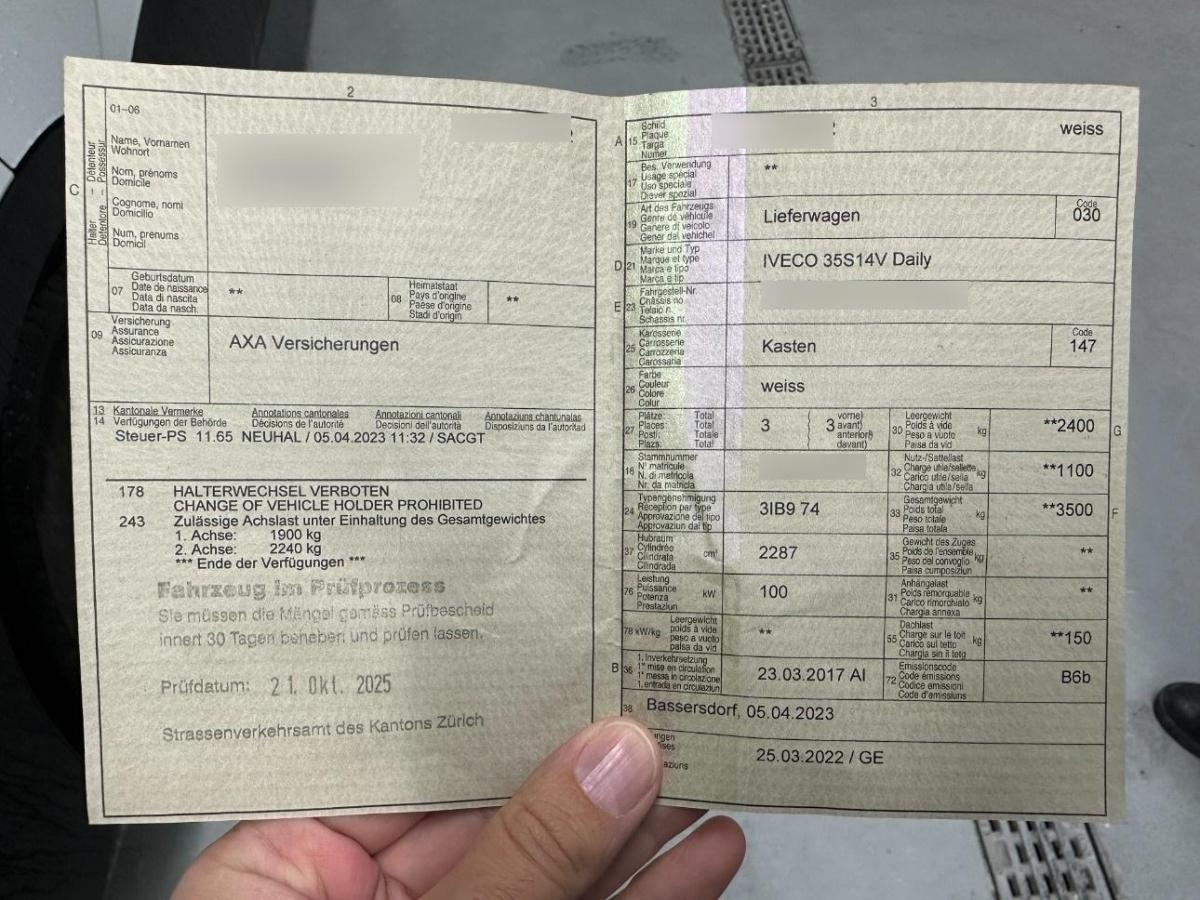 2
01-06
C
Halter – Détenteur
Detentore – Possessur
Name, Vornamen
Wohnort
Nom, prénoms
Domicile
Cognome, nomi
Domicilio
Num, prenums
Domicil
07
Geburtsdatum
Date de naissance
Data di nascita
Data da nasch.
**
08
Heimatstaat
Pays d'origine
Paese d'origine
Stadi d'origin
**
09
Versicherung
Assurance
Assicurazione
Assicuranza
AXA Versicherungen
13 Kantonale Vermerke Annotations cantonales Annotazioni cantonali Annotaziuns chantunalas
14 Verfügungen der Behörde Décisions de l'autorité Decisioni dell'autorità Disposiziuns da l'autoritad
Steuer-PS 11.65 NEUHAL / 05.04.2023 11:32 / SACGT
178 HALTERWECHSEL VERBOTEN
CHANGE OF VEHICLE HOLDER PROHIBITED
243 Zulässige Achslast unter Einhaltung des Gesamtgewichtes
1. Achse: 1900 kg
2. Achse: 2240 kg
*** Ende der Verfügungen ***
Fahrzeug im Prüfprozess
Sie müssen die Mängel gemäss Prüfbescheid
innert 30 Tagen beheben und prüfen lassen.
Prüfdatum: 21. Okt. 2025
Strassenverkehrsamt des Kantons Zürich
3
A 15
Schild
Plaque
Targa
Numer
weiss
17
Bes. Verwendung
Usage spécial
Uso speciale
Diever spezial
**
19
Art des Fahrzeugs
Genre de véhicule
Genere di veicolo
Gener dal vehichel
Lieferwagen
Code
030
D 21
Marke und Typ
Marque et type
Marca e tipo
Marca e tip
IVECO 35S14V Daily
E 23
Fahrgestell-Nr.
Châssis no
Telaio n.
Schassis nr.
25
Karosserie
Carrosserie
Carrozzeria
Carossaria
Kasten
Code
147
26
Farbe
Couleur
Colore
Colur
weiss
27
Plätze: Total
Places: Total
Posti: Totale
Plazs: Total
3
3
vorne)
avant)
anteriori)
davant)
30
Leergewicht
Poids à vide
Peso a vuoto
Paisa da vid
kg
**2400
G
18
Stammnummer
N° matricule
N. di matricola
Nr. da matricla
32
Nutz-/Sattellast
Charge utile/sellette
Carico utile/sella
Chargia utila/sella
kg
**1100
24
Typengenehmigung
Réception par type
Approvazione del tipo
Approvaziun dal tip
3IB9 74
33
Gesamtgewicht
Poids total
Peso totale
Paisa totala
kg
**3500
F
37
Hubraum
Cylindrée
Cilindrata
Cilindrada
cm³
2287
35
Gewicht des Zuges
Poids de l'ensemble
Peso del convoglio
Paisa cumposiziun
kg
**
76
Leistung
Puissance
Potenza
Prestaziun
kW
100
31
Anhängelast
Poids remorquable
Carico rimorchiato
Chargia annexa
kg
**
78 kW/kg
Leergewicht
poids à vide
peso a vuoto
paisa da vid
**
55
Dachlast
Charge sur le toit
Carico sul tetto
Chargia sin il tetg
kg
**150
B 36
1. Inverkehrsetzung
1re mise en circulation
1a messa in circolazione
1. entrada en circulaziun
23.03.2017 AI
72
Emissionscode
Code émissions
Codice emissioni
Code d'emissiuns
B6b
38
Bassersdorf, 05.04.2023
25.03.2022 / GE